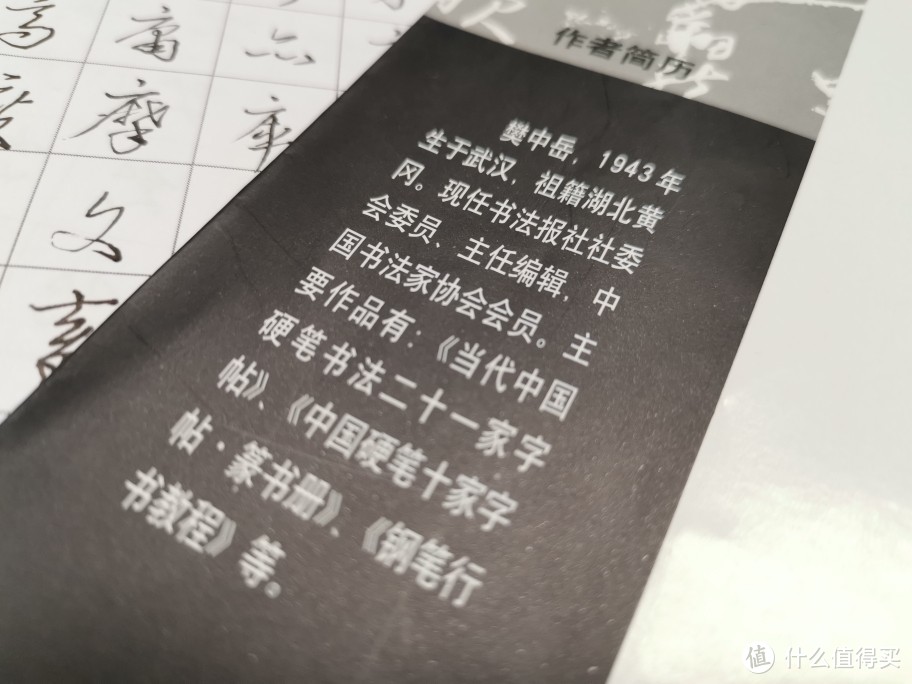 高 庸 亦
摩 库
文
作者简历
樊中岳，1943年
生于武汉，祖籍湖北黄
冈。现任书法报社社委
会委员、主任编辑，中
国书法家协会会员。主
要作品有：《当代中国
硬笔书法二十一家字
帖》、《中国硬笔十家字
帖·篆书册》、《钢笔行
书教程》等。
值 什么值得买